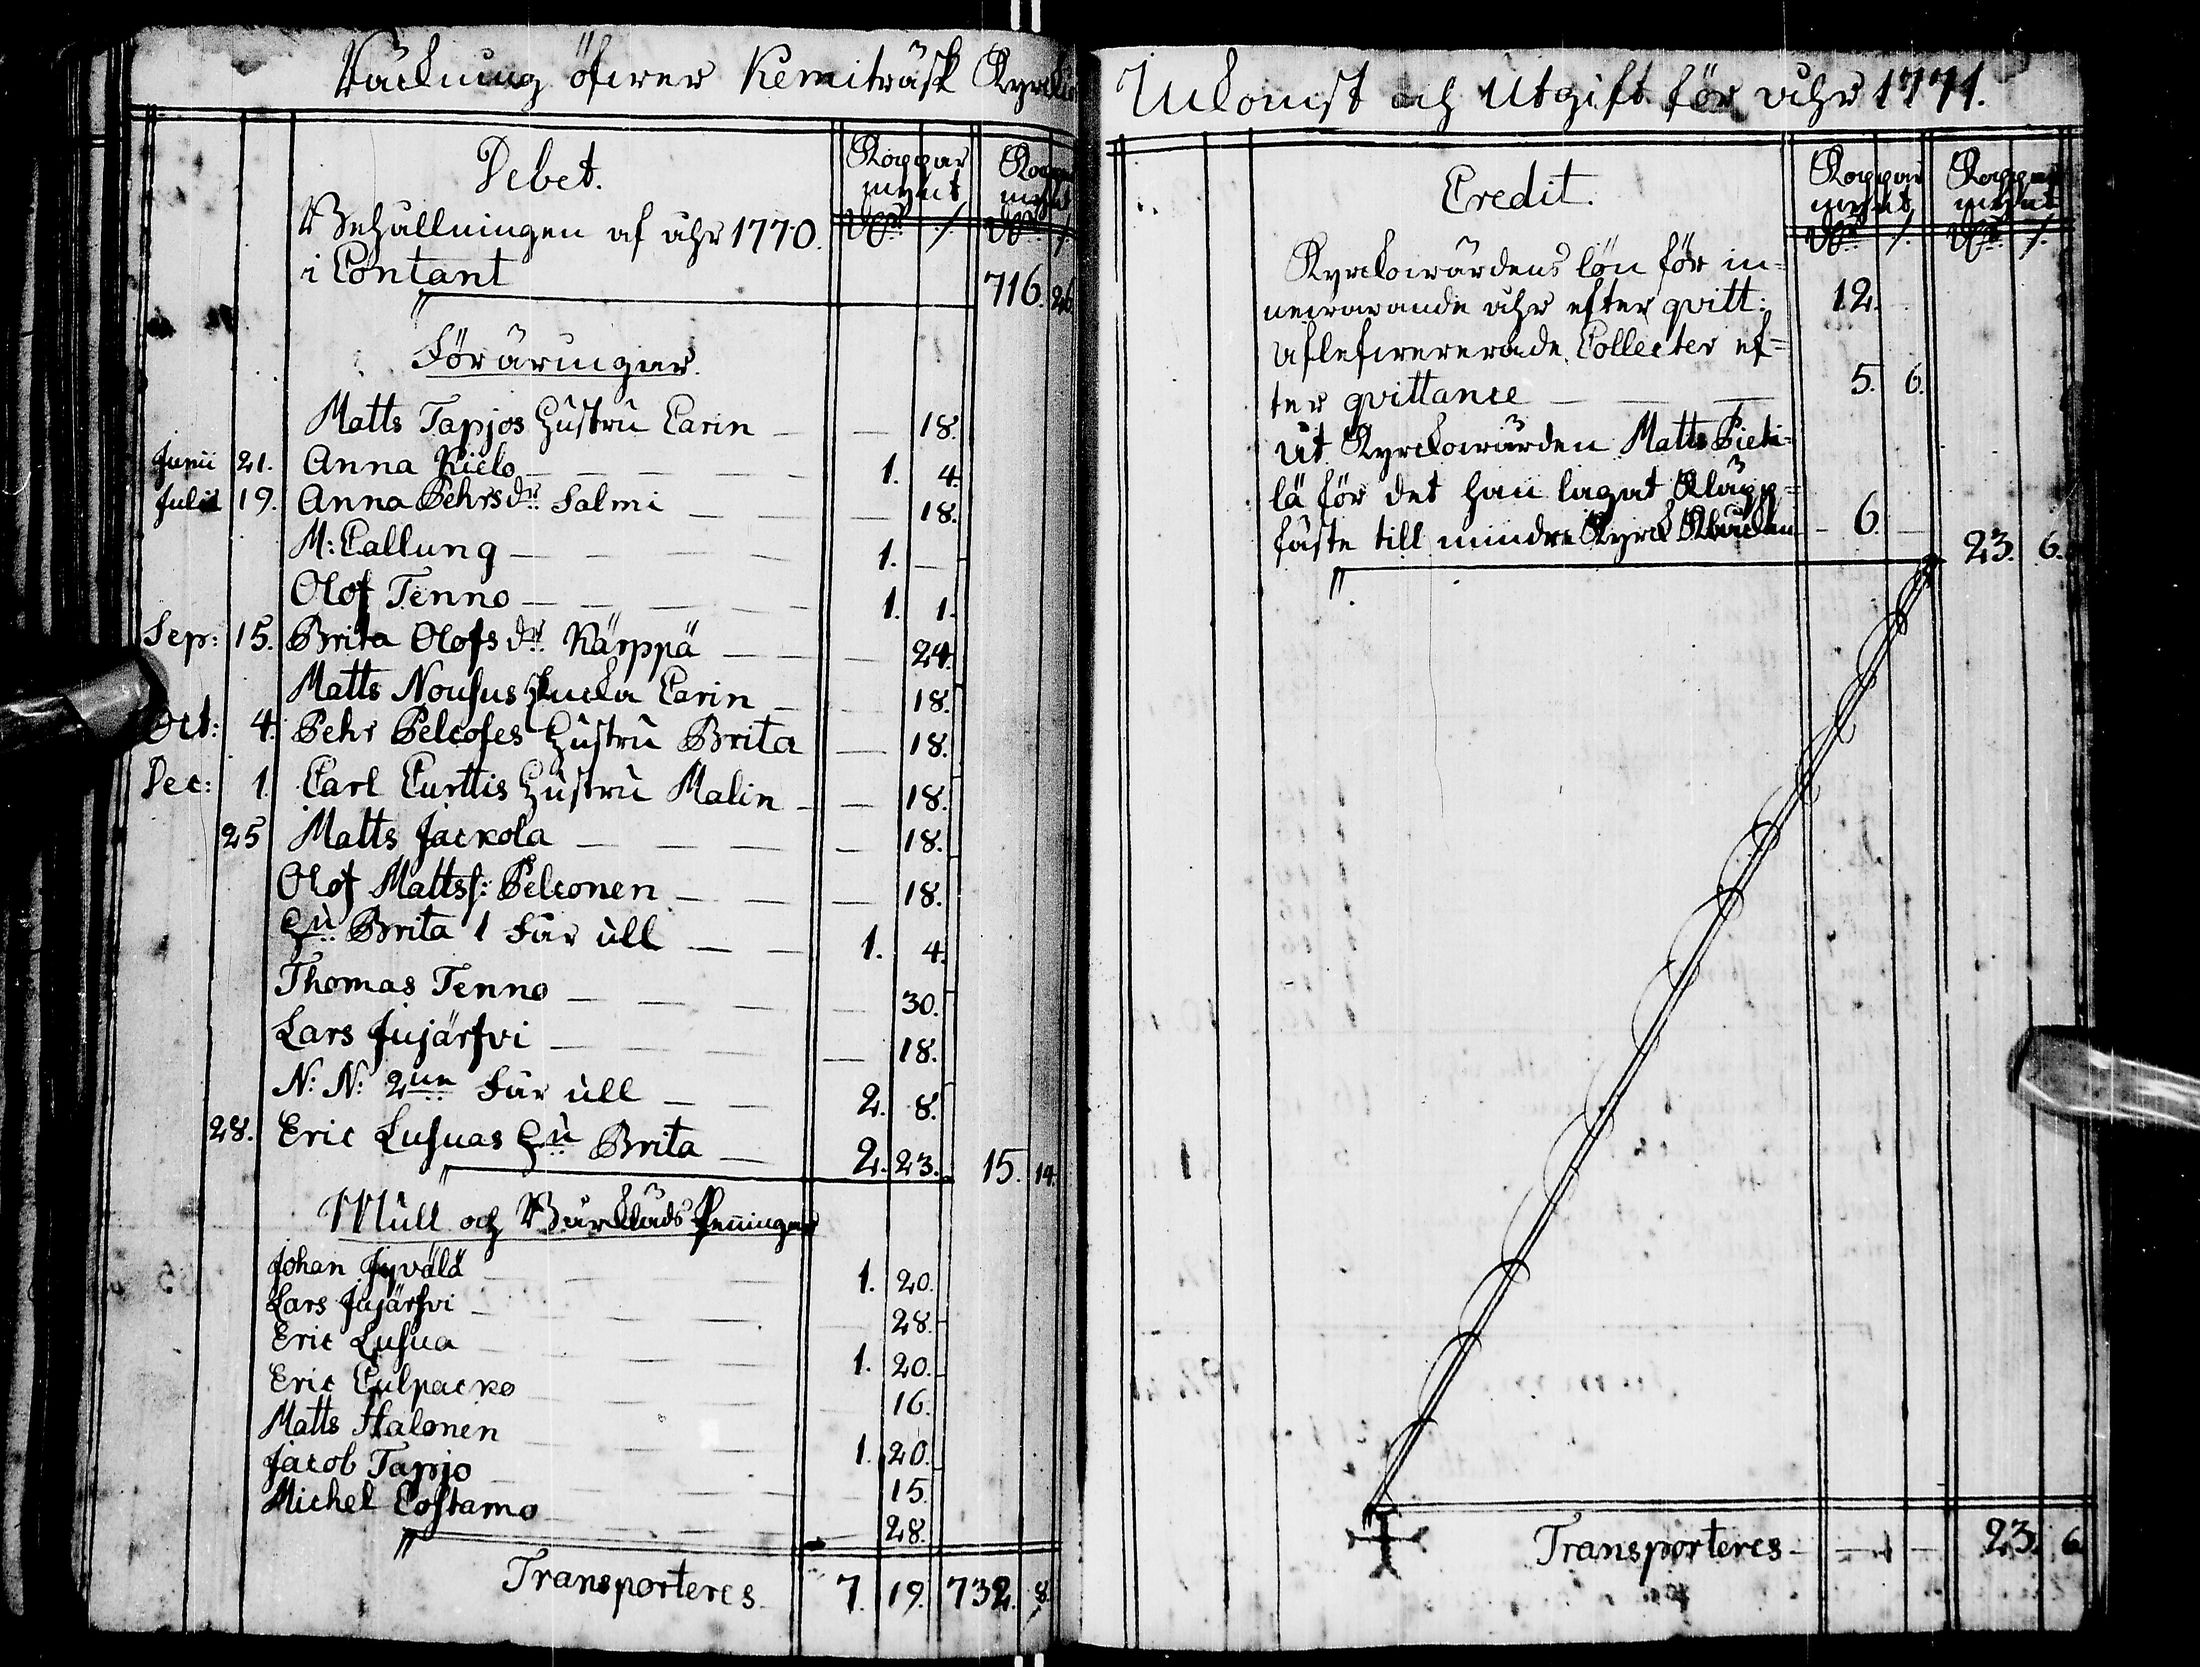 Räckning öfwer Kemiträsk Kyrckio
Debet.
Koppar
mynt
Koppar
mynt
Behållningen af åhr 1770. Dlr ./. Dlr ./.
i Contant 716. 26
Föräringar.
Matts Tapjos hustru Carin — — 18.
Junii 21. Anna Kielo — — — — — 1. 4.
Julii 19. Anna Pehrsdr. Salmi — — — 18.
M: Callung — — — — 1. —
Olof Tenno — — — — 1. 1.
Sep: 15. Brita Olofsdr. Kärppä — — — 24.
Matts Nousus Encka Carin — — 18.
Oct: 4. Pehr Pelcoses hustru Brita — 18.
Dec: 1. Carl Curttis hustru Malin — — 18.
25 Matts Jackola — — — — 18.
Olof Mattss: Pelconen — — — 18.
hu Brita 1 Får ull — — 1. 4.
Thomas Tenno — — — — 30.
Lars Jujärfvi — — — — 18.
N: N: 2ne Får ull — — 2. 8.
28. Eric Lusuas hu Brita — 2. 23. 15. 14
Mull och Bårklåds Penningar
Johan Jyvälä — — — 1. 20.
Lars Jujärfvi — — — — 28.
Eric Lusua — — — 1. 20.
Eric Culpacko — — — — 16.
Matts Halonen — — — 1. 20.
Jacob Tapjo — — — — 15.
Michel Costamo — — — — 28.
Transporteres. 7. 19. 732. 8.
Inkomst och Utgift för åhr 1771.
Credit.
Koppar
mynt
Koppar
mynt
Dlr ./. Dlr ./.
Kyrckowärdens lön för in-
newarande åhr efter qvitt: 12. —
Aflefwererade Collecter ef-
ter qvittance — — — 5. 6.
Ut Kyrckowärden Matts Pieti-
lä för det han lagat Kläpp-
fäste till mindre Kyrck Kluckan — 6. — 23. 6.
Transporteres — — — 23. 6.